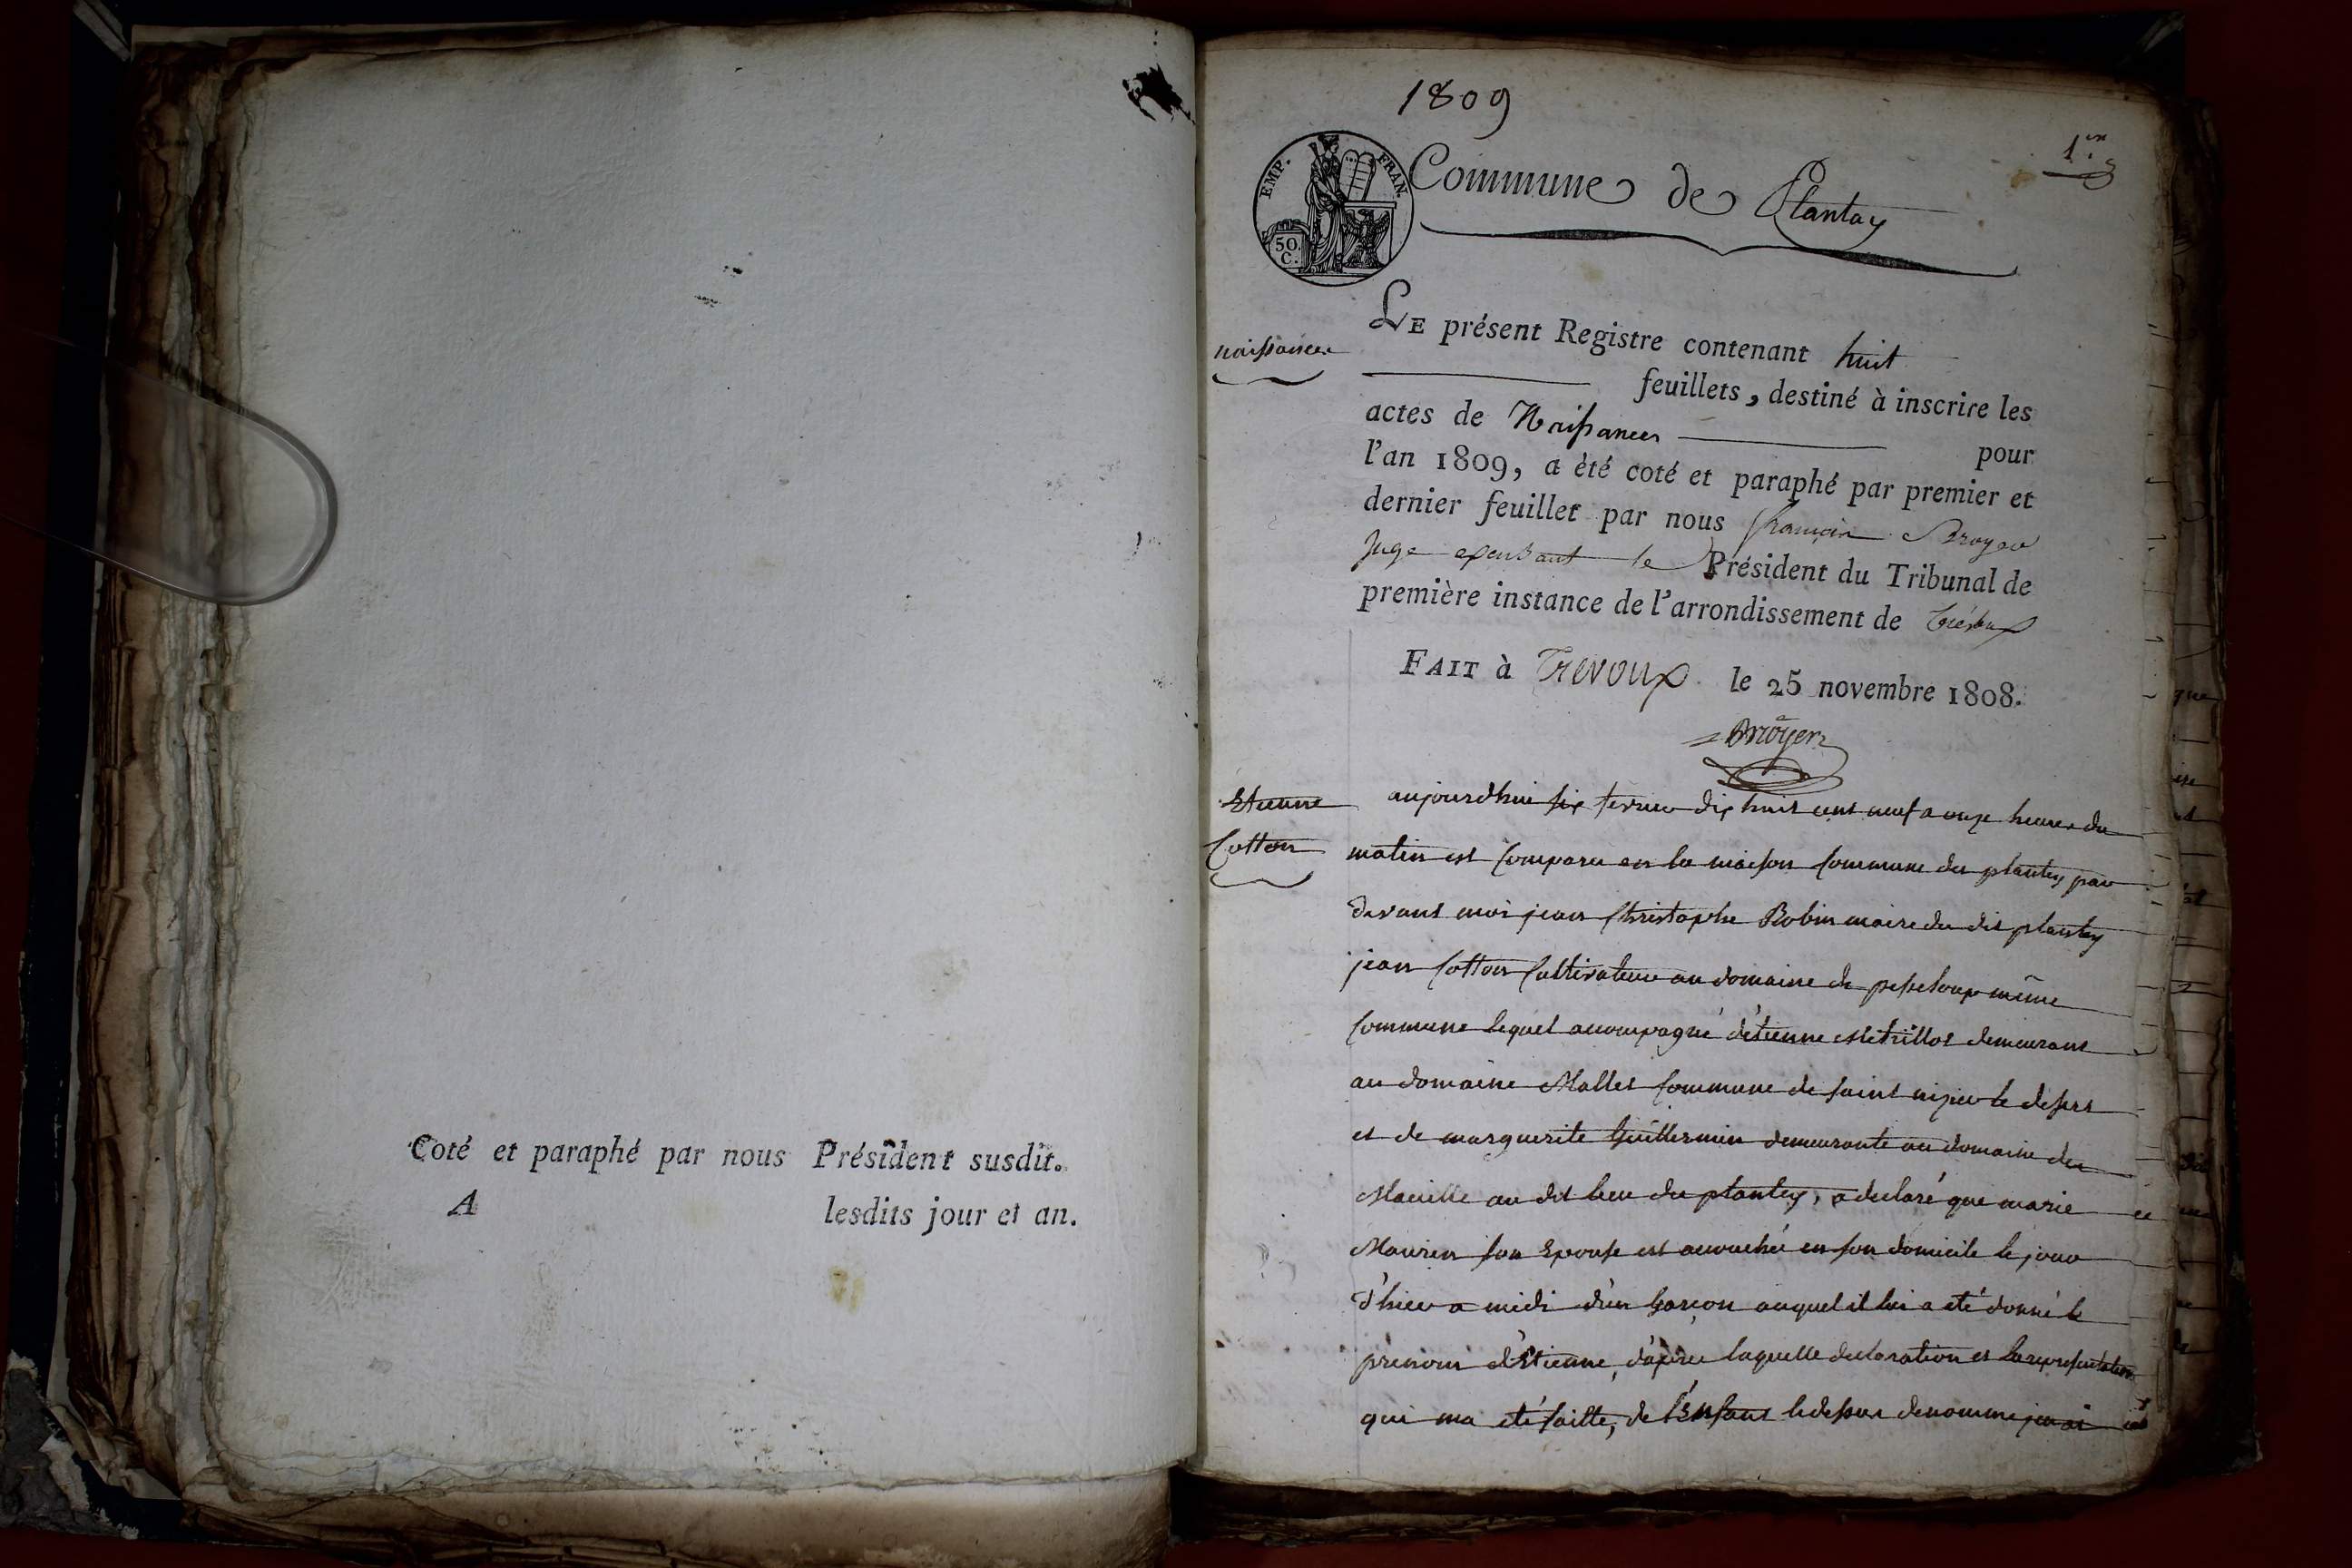 Coté et paraphé par nous Président susdit.
A lesdits jour et an.
1809
1.er
EMP. FRAN.
50. C.
Commune de Plantay
naissances
LE présent Registre contenant huit
feuillets, destiné à inscrire les
actes de Naissances pour
l'an 1809, a été coté et paraphé par premier et
dernier feuillet par nous françois Broyer
Juge exerçant le Président du Tribunal de
première instance de l'arrondissement de Trévoux
FAIT à Trevoux le 25 novembre 1808.
Broyer
Etienne
Cotton
aujourdhui six fevrier dix huit cent neuf a onze heures du
matin est comparu en la maison commune du plantey par
devant moi jean Christophe Robin maire du dit plantey
jean Cotton Cultivateur au domaine de pesseloup même
commune lequel accompagné d'étienne Metrillot demeurant
au domaine Mallet commune de saint nizier le desert
et de marguerite Guillermin demeurante au domaine du
au dit lieu du plantey, a declaré que marie
Maurin son Epouse est accouchée en son domicile le jour
d'hier a midi d'un Garçon auquel il lui a été donné le
prenom d'Etienne, d'après laquelle declaration et la representation
qui ma été faitte, de l'Enfant cidessus denommé jen ai